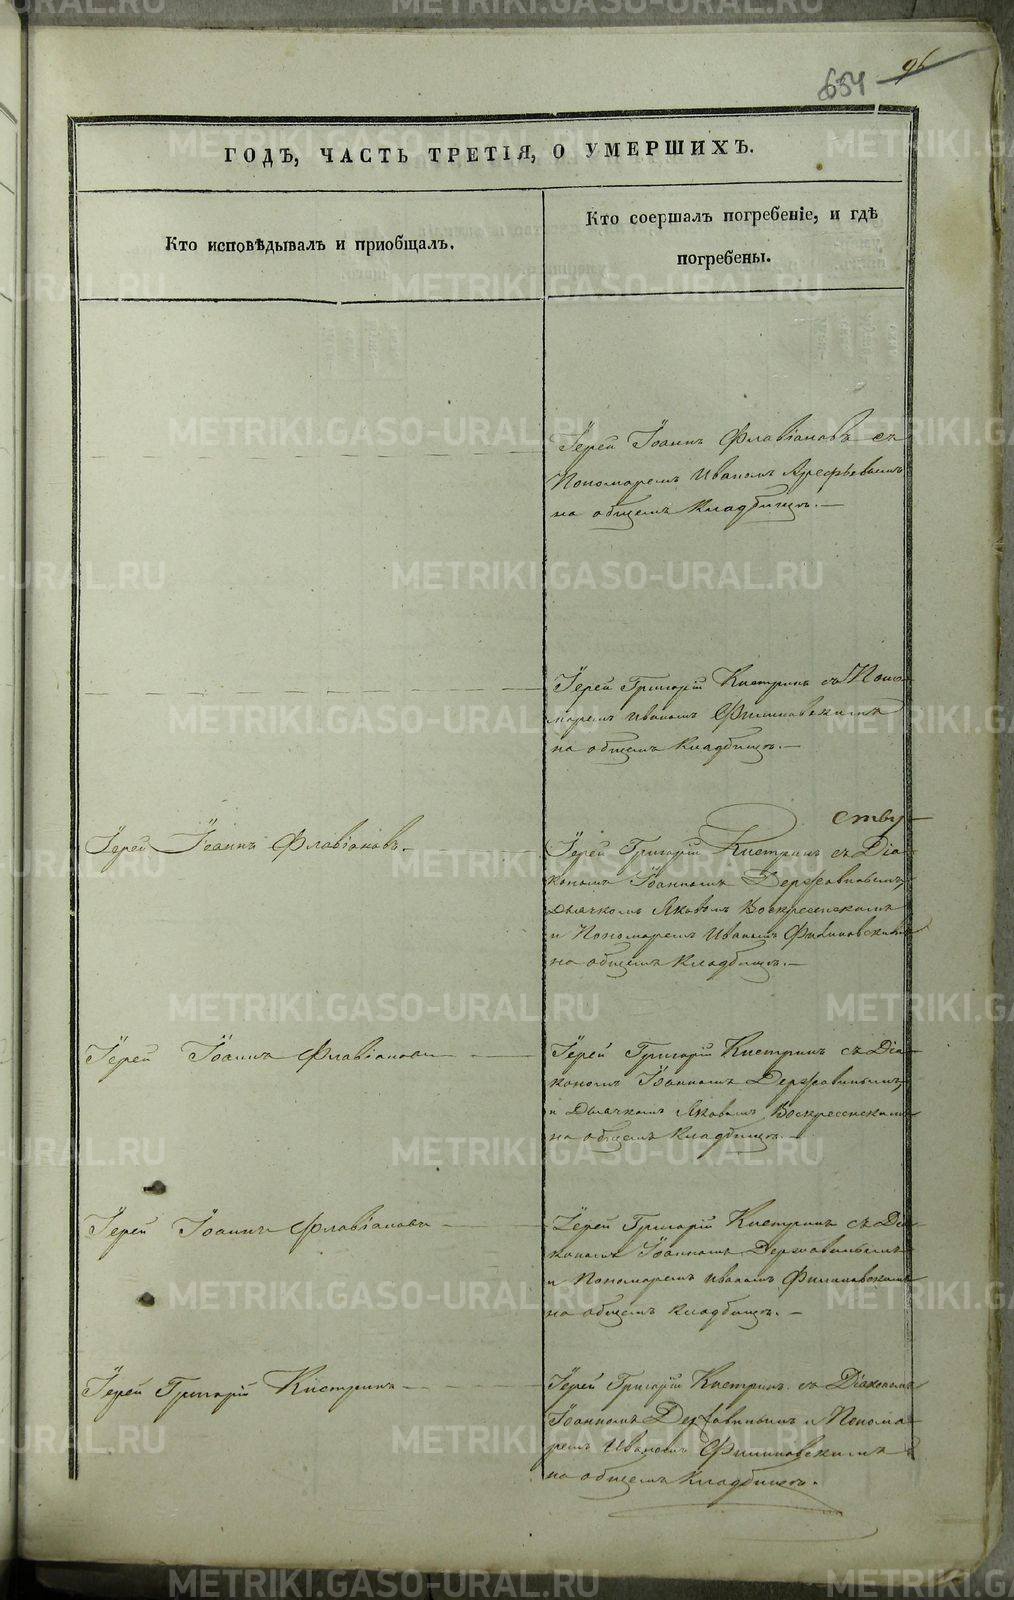 96
654
ГОДЪ, ЧАСТЬ ТРЕТІЯ, О УМЕРШИХЪ.
Кто исповѣдывалъ и приобщалъ.
Кто соершалъ погребеніе, и гдѣ
погребены.
Іерей Іоаннъ Флавіановъ съ
Пономаремъ Иваномъ Арефьевымъ
на общемъ кладбищѣ.—
Іерей Григорій Кистринъ съ Поно-
маремъ Иваномъ Филиповскимъ
на общемъ кладбищѣ.—
ству
Іерей Іоаннъ Флавіановъ.
Іерей Григорій Кистринъ съ Діа-
кономъ Іоанномъ Державинымъ,
Дьячкомъ Яковомъ Воскресенскимъ
и Пономаремъ Иваномъ Филиповскимъ
на общемъ кладбищѣ.—
Іерей Іоаннъ Флавіановъ
Іерей Григорій Кистринъ съ Діа-
кономъ Іоанномъ Державинымъ,
и Дьячкомъ Яковомъ Воскресенскимъ
на общемъ кладбищѣ.—
Іерей Іоаннъ Флавіановъ
Іерей Григорій Кистринъ съ Діа-
кономъ Іоанномъ Державинымъ
и Пономаремъ Иваномъ Филиповскимъ
на общемъ кладбищѣ.—
Іерей Григорій Кистринъ
Іерей Григорій Кистринъ съ Діакономъ
Іоанномъ Державинымъ и Понома-
ремъ Иваномъ Филиповскимъ
на общемъ кладбищѣ.
METRIKI.GASO-URAL.RU